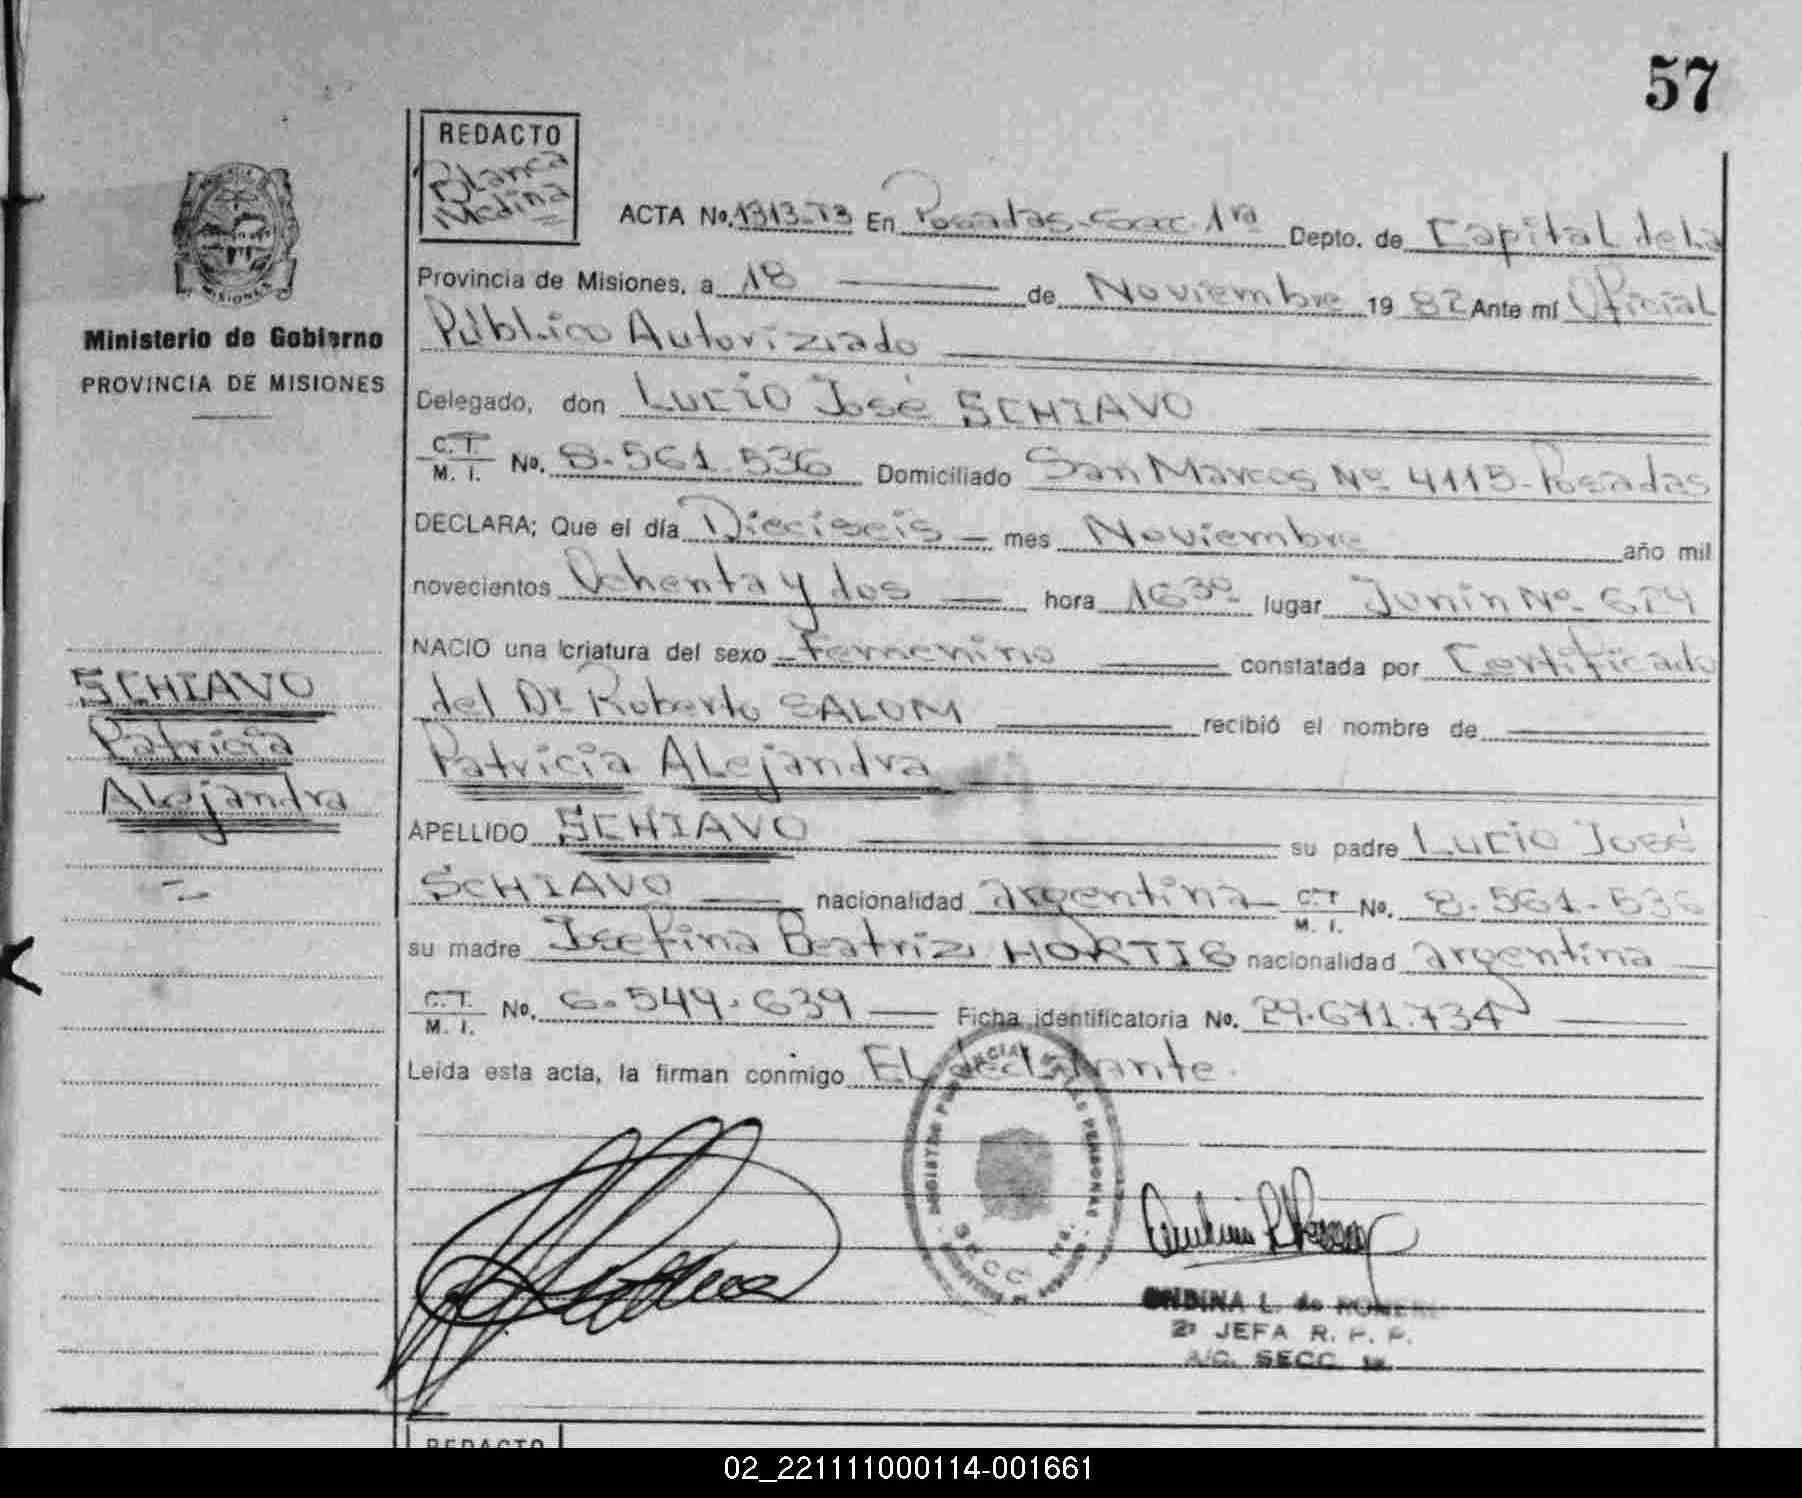 57
REDACTO
Blanca
Medina
ACTA No. 1313-T3 En Posadas-Secc. 1ra Depto. de Capital de la
Provincia de Misiones, a 18 de Noviembre 1982 Ante mí Oficial
Público Autorizado
Delegado, don Lucio José SCHIAVO
C.T.
M. I. No. 8.561.536 Domiciliado San Marcos Nº 4115-Posadas
DECLARA; Que el día Dieciseis mes Noviembre año mil
novecientos Ochenta y dos hora 16³⁰ lugar Junín Nº
NACIO una criatura del sexo Femenino constatada por Certificado
del Dr Roberto SALOM recibió el nombre de
Patricia Alejandra
APELLIDO SCHIAVO su padre Lucio José
SCHIAVO nacionalidad argentina C.T. M. I. No. 8.561.536
su madre Josefina Beatriz HORTIS nacionalidad argentina
C.T.
M. I. No. 6.549.639 Ficha identificatoria No. 29.671.734
Leída esta acta, la firman conmigo El declarante.
MISIONES
Ministerio de Gobierno
PROVINCIA DE MISIONES
SCHIAVO
Patricia
Alejandra
SECC. 1ra.
ONDINA L. de ROMERO
2º JEFA R. P. P.
A/C. SECC. 1a.
REDACTO
02_221111000114-001661